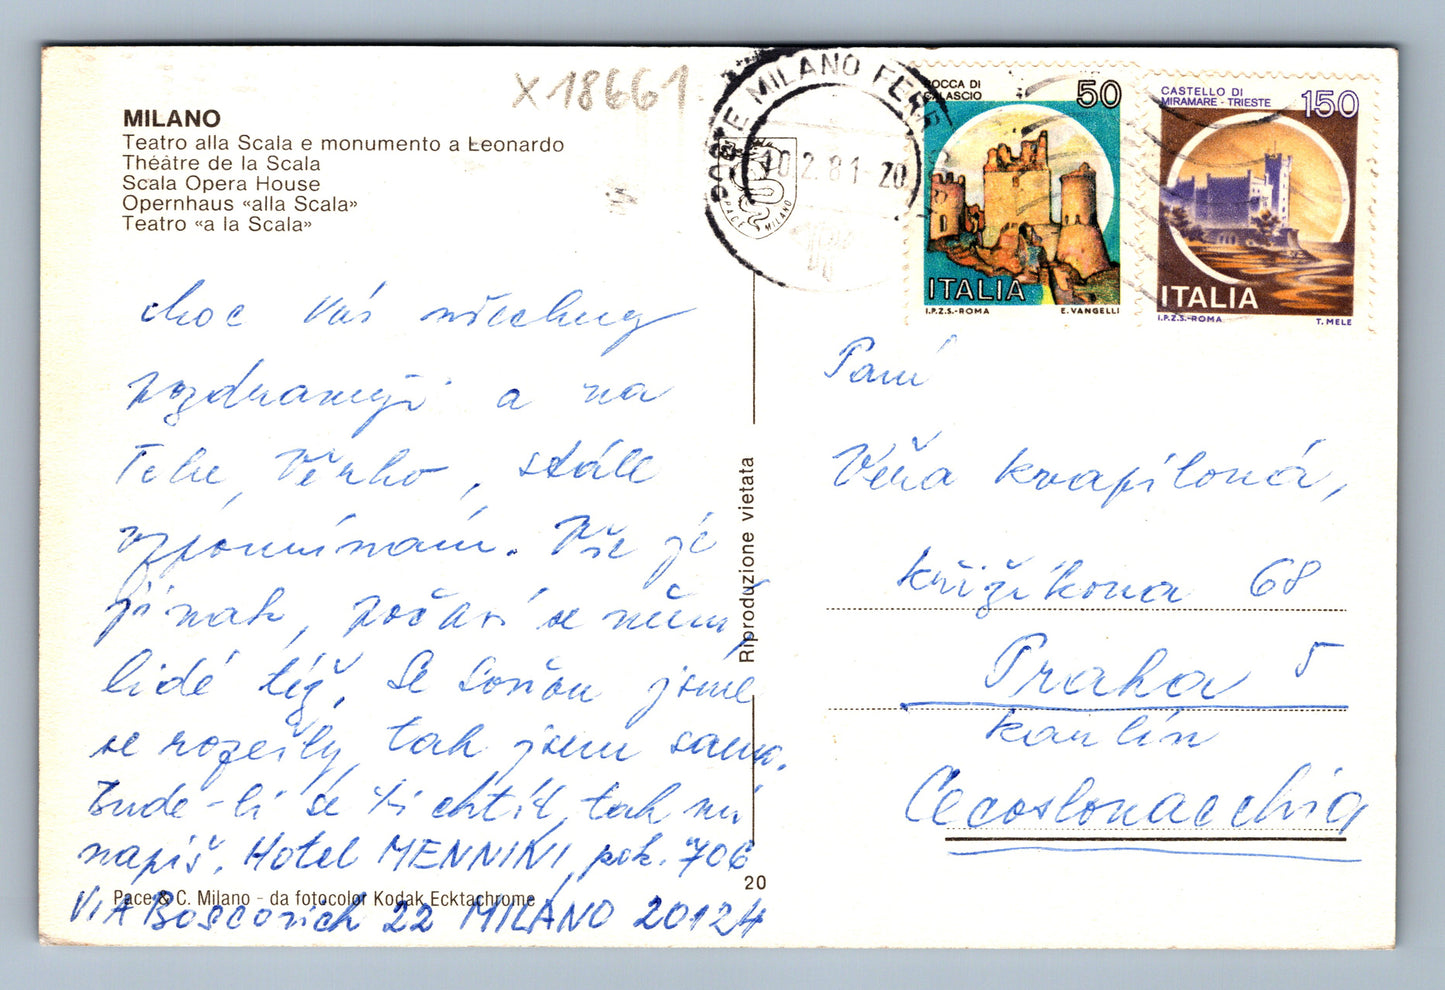 X18661
MILANO
Teatro alla Scala e monumento a Leonardo
Théâtre de la Scala
Scala Opera House
Opernhaus «alla Scala»
Teatro «a la Scala»
POSTE MILANO FERR
10 2.81-20
PACE MILANO
ROCCA DI
CALASCIO
50
ITALIA
I.P.Z.S.-ROMA E. VANGELLI
CASTELLO DI
MIRAMARE - TRIESTE
150
ITALIA
I.P.Z.S.-ROMA T. MELE
chci Vás všechny
pozdravuji a na
Tebe, Věrko, stále
vzpomínám. Vše je
jinak, počasí se mění,
lidé též. Se Soňou jsme
se rozešly, tak jsem sama.
Bude-li se Ti chtít, tak mi
napiš. Hotel MENNINI, pok. 706
VIA Boscovich 22 MILANO 20124
Pace & C. Milano - da fotocolor Kodak Ecktachrome
20
Riproduzione vietata
Paní
Věra Kvapilová,
Křižíkova 68
Praha 5
Karlín
Cecoslovacchia